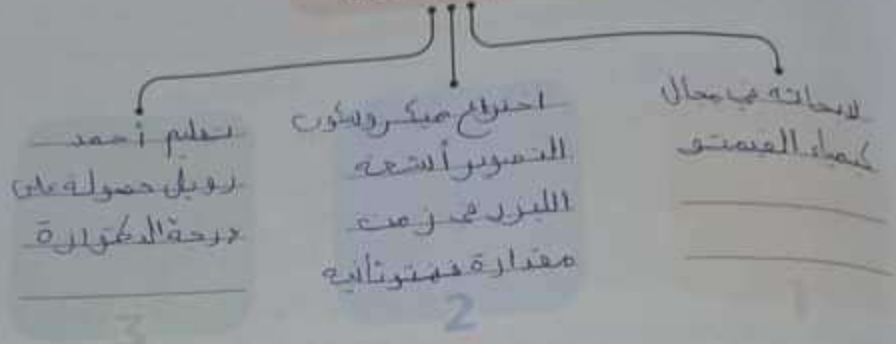 لابحاثه في مجال
كيمياء الفيمتو
1
اختراع ميكروسكوب
التصوير أشعه
الليزر في زمن
مقدارة فمتوثانيه
2
تعليم أحمد
زويل حصوله على
درجة الدكتورة
3